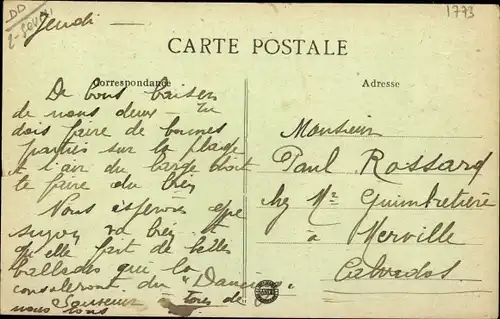 DD
Jeudi
1773
CARTE POSTALE
Correspondance
Adresse
De bons baisers
de nous deux - Tu
dois faire de bonnes
parties sur la plage
et l'air du large doit
te faire du bien
Nous espérons que
va bien et
qu'elle fait de belles
ballades qui la
consoleront du "Dancing"
Souvenir à tous de
nous tous
Monsieur
Paul Rossard
chez Mr Guimbretière
à Merville
Calvados